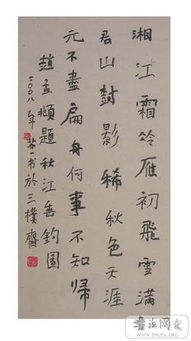 湘江霜冷雁初飛雪滿
君山樹影稀秋色天涯
元不盡扁舟何事不知歸
趙孟頫題秋江垂釣圖
二〇〇八年書於三樸齋